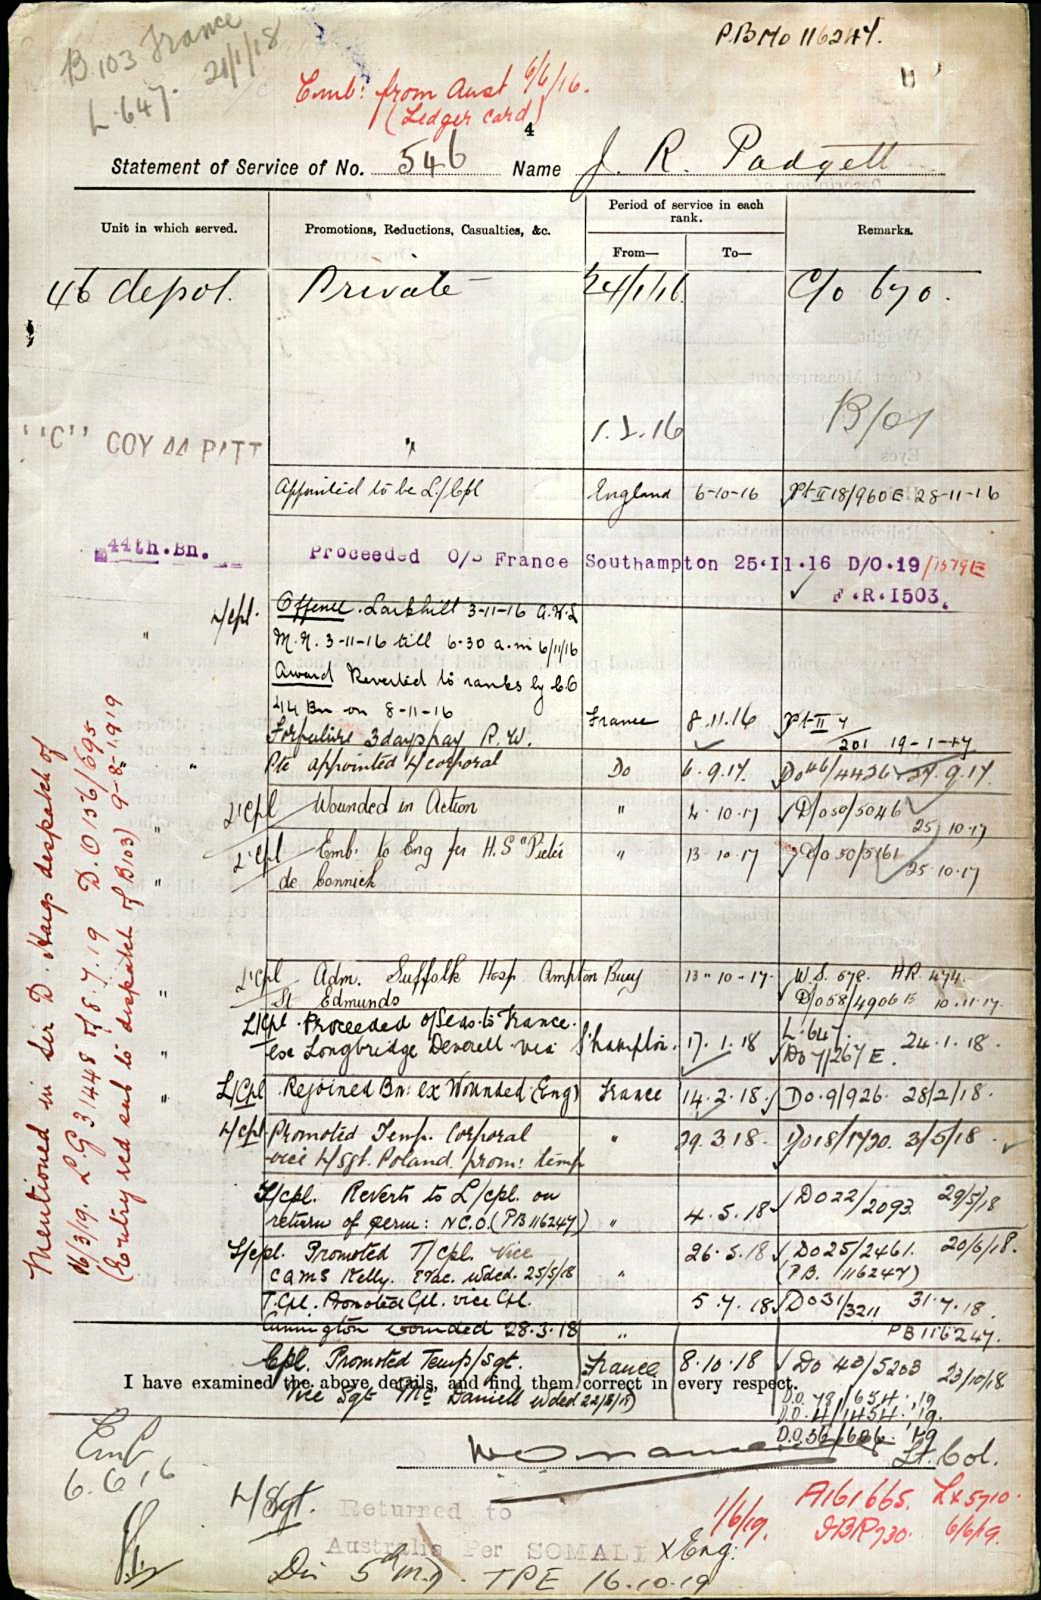 B.103 France
21/1/18
L.647.
PB No 116247.
Emb: from Aust 6/6/16.
(Ledger card)
4
Statement of Service of No. 546 Name J. R. Padgett
Unit in which served.
Promotions, Reductions, Casualties, &c.
Period of service in each rank.
From—
To—
Remarks.
46 depot. Private 24/1/16 C/o 670.
"C" COY 44 BATT " 1.2.16 B/01
Appointed to be L/Cpl England 6-10-16 Pt II 18/960E 28-11-16
44th.Bn. Proceeded O/S France Southampton 25.II.16 D/O.19/1579E
F.R.I503.
" L/cpl. Offence. Larkhill 3-11-16 A.W.L
M.N. 3-11-16 till 6-30 a.m 6/11/16
Award Reverted to ranks by CO
44 Bn on 8-11-16 France 8.11.16 Pt II 7/201 19-1-17
Forfeiture 3 days pay R.W.
" Pte appointed L/corporal Do 6.9.17. Do 46/4426 27.9.17.
" L'Cpl Wounded in Action " 4.10.17 D/o 50/5046 25/10.17
" L'Cpl Emb. to Eng per H.S "Pieter " 13-10-17 D/o 50/5161 25.10.17
de Connick
" L'Cpl Adm. Suffolk Hosp Ampton Bury 13-10-17. W.S. HR.
St Edmunds D/o 58/4906 E 10.11.17.
" L/Cpl Proceeded o/seas to France. L.647.
ex Longbridge Deverell via S'hampton. 17.1.18 Do 7/267 E. 24.1.18.
" L/Cpl Rejoined Bn: ex Wounded (Eng) France 14.2.18. Do.9/926. 28/2/18.
L/cpl Promoted Temp. Corporal " 29.3.18. Do 18/1720. 3/5/18.
vice L/Sgt. Poland prom: temp
T/cpl. Reverts to L/cpl. on Do 22/2093 29/5/18
return of perm: N.C.O. (PB 116247) " 4.5.18
L/cpl. Promoted T/cpl. vice 26.5.18 Do 25/2461. 20/6/18.
CQMS Kelly. Evac. wded. 25/5/18 " (P.B. 116247)
T.Cpl. Promoted Cpl. vice Cpl. 5.7.18 Do 31/3211 31.7.18.
wounded 28.3.18 " PB 116247.
Cpl. Promoted Temp/Sgt. France 8.10.18 Do 40/5203 23/10/18
I have examined the above details, and find them correct in every respect.
vice Sgt Mc Daniell wded
D.O. 79/654. '19
D.O. 4/1454. '19.
D.O. 36/686. '19
Lt. Col.
Mentioned in Sir D. Haigs despatch of
16/3/19. L.G. 31448 of 8.7.19 D.O 136/695
(Entry red sub to despatch of B103) 9-8-1919
Emb
6.6.16
L/Sgt.
Returned to
Australia Per SOMALI x Eng:
1/6/19.
A161665. Lx5710.
IBR730. 6/6/19.
Dis 5th M.D. TPE 16.10.19